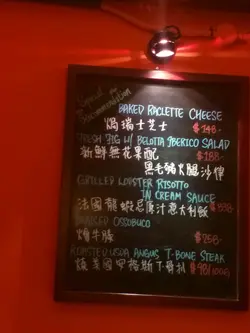 Recommendation
BAKED RACLETTE CHEESE
焗瑞士芝士 $148-
FRESH FIG W/ BELOTTA IBERICO SALAD
新鮮無花果配 $188-
黑毛豬火腿沙律
GRILLED LOBSTER RISOTTO
IN CREAM SAUCE
法國龍蝦忌廉汁意大利飯
BRAISED OSSOBUCO
燴牛膝 $258-
ROASTED USDA ANGUS T-BONE STEAK
美國安格斯T骨扒 $98/100G